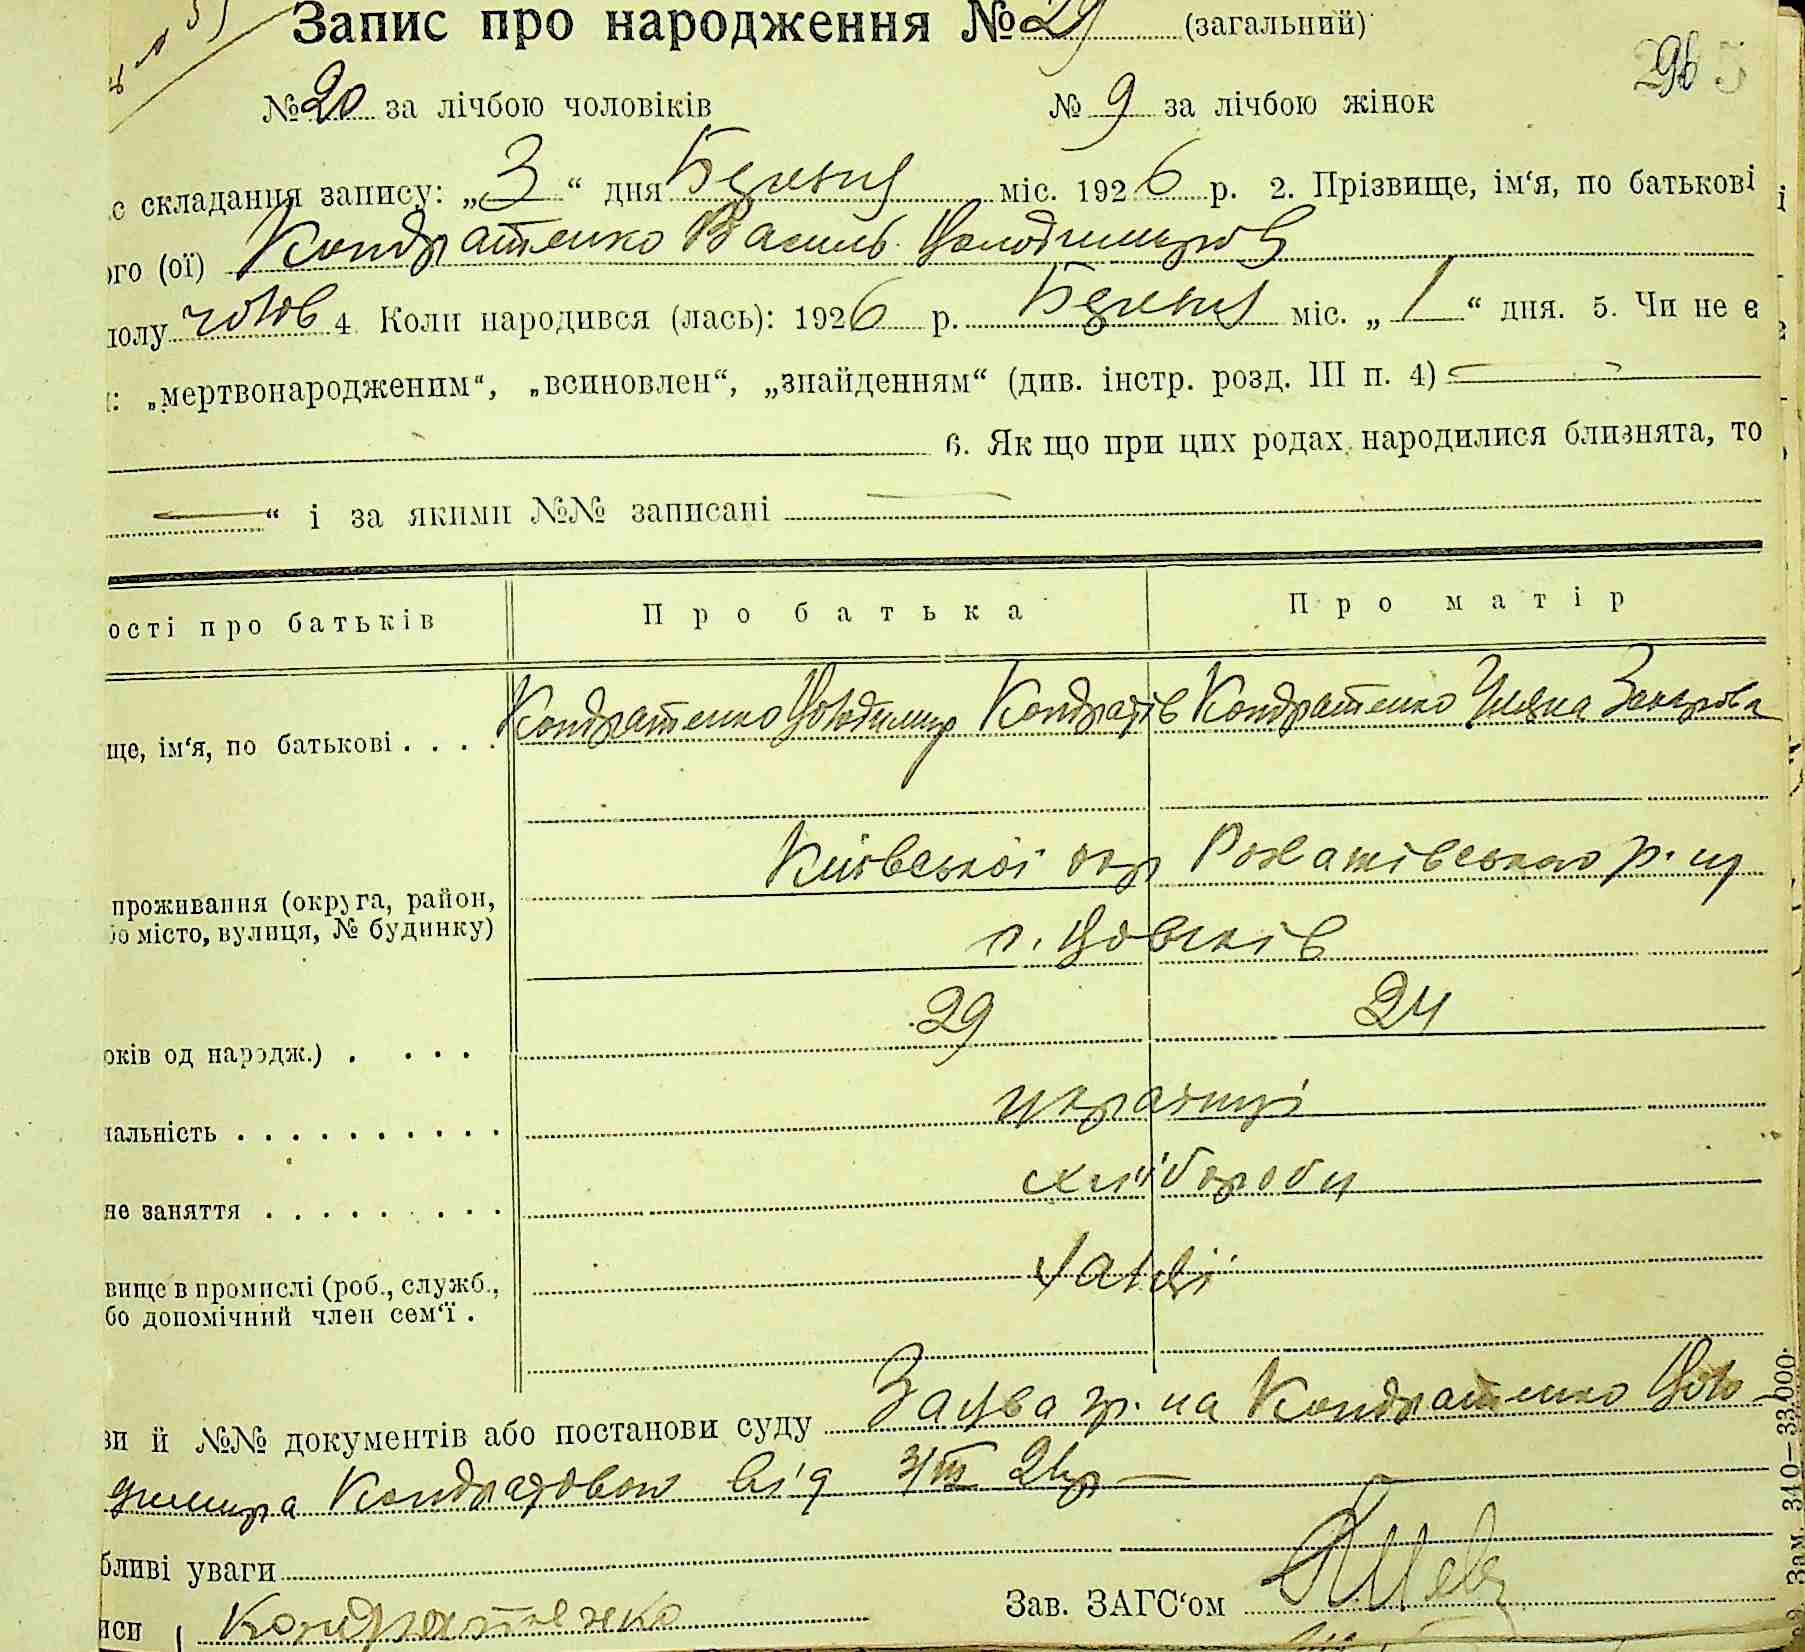 Запис про народження № 29 (загальний)
№ 20 за лічбою чоловіків № 9 за лічбою жінок
с складання запису: „3“ дня Березня міс. 1926 р. 2. Прізвище, ім‘я, по батькові
ого (ої) Кондратенко Василь Володимиров
полу чолов 4 Коли народився (лась): 1926 р. Березня міс. „1“ дня. 5. Чи не є
: „мертвонародженим“, „всиновлен“, „знайденням“ (див. інстр. розд. III п. 4)
6. Як що при цих родах народилися близнята, то
“ і за якими №№ записані
ості про батьків Про батька Про матір
ще, ім‘я, по батькові . . . . Кондратенко Володимир Кондратів Кондратенко Уляна Захарова
Київської окр Рокатівського р-ну
проживання (округа, район,
бо місто, вулиця, № будинку) с. Вовчків
оків од народж.) . . . . 29 24
нальність . . . . . . . . . . українці
не заняття . . . . . . . . . хлібороби
вище в промислі (роб., служб.,
бо допомічний член сем‘ї .
ви й №№ документів або постанови суду Заява гр-на Кондратенко Воло-
димира Кондратовою від 3/III 26р
бливі уваги
Зав. ЗАГС‘ом
иси Кондратенко
Зам. 340—33.000.